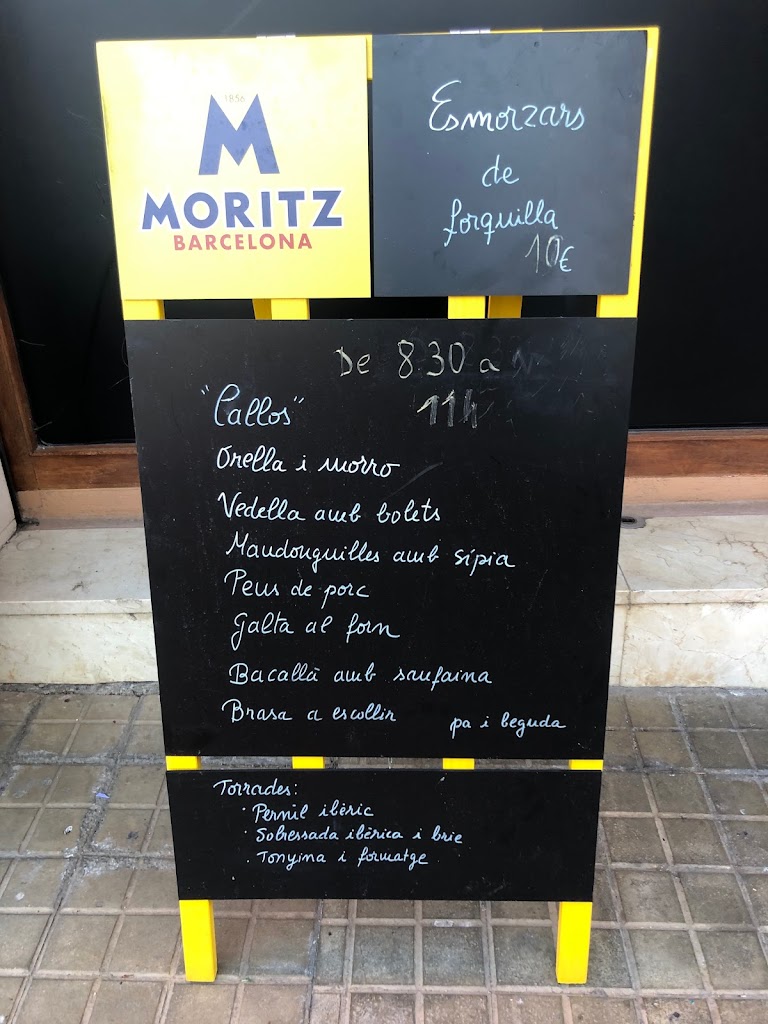 1856
M
MORITZ
BARCELONA
Esmorzars
de
forquilla
10€
De 8 30 a
11h
"Callos"
Orella i morro
Vedella amb bolets
Mandonguilles amb sípia
Peus de porc
Galta al forn
Bacallà amb sanfaina
Brasa a escollir
pa i beguda
Torrades:
· Pernil ibèric
· Sobressada ibèrica i brie
. Tonyina i formatge